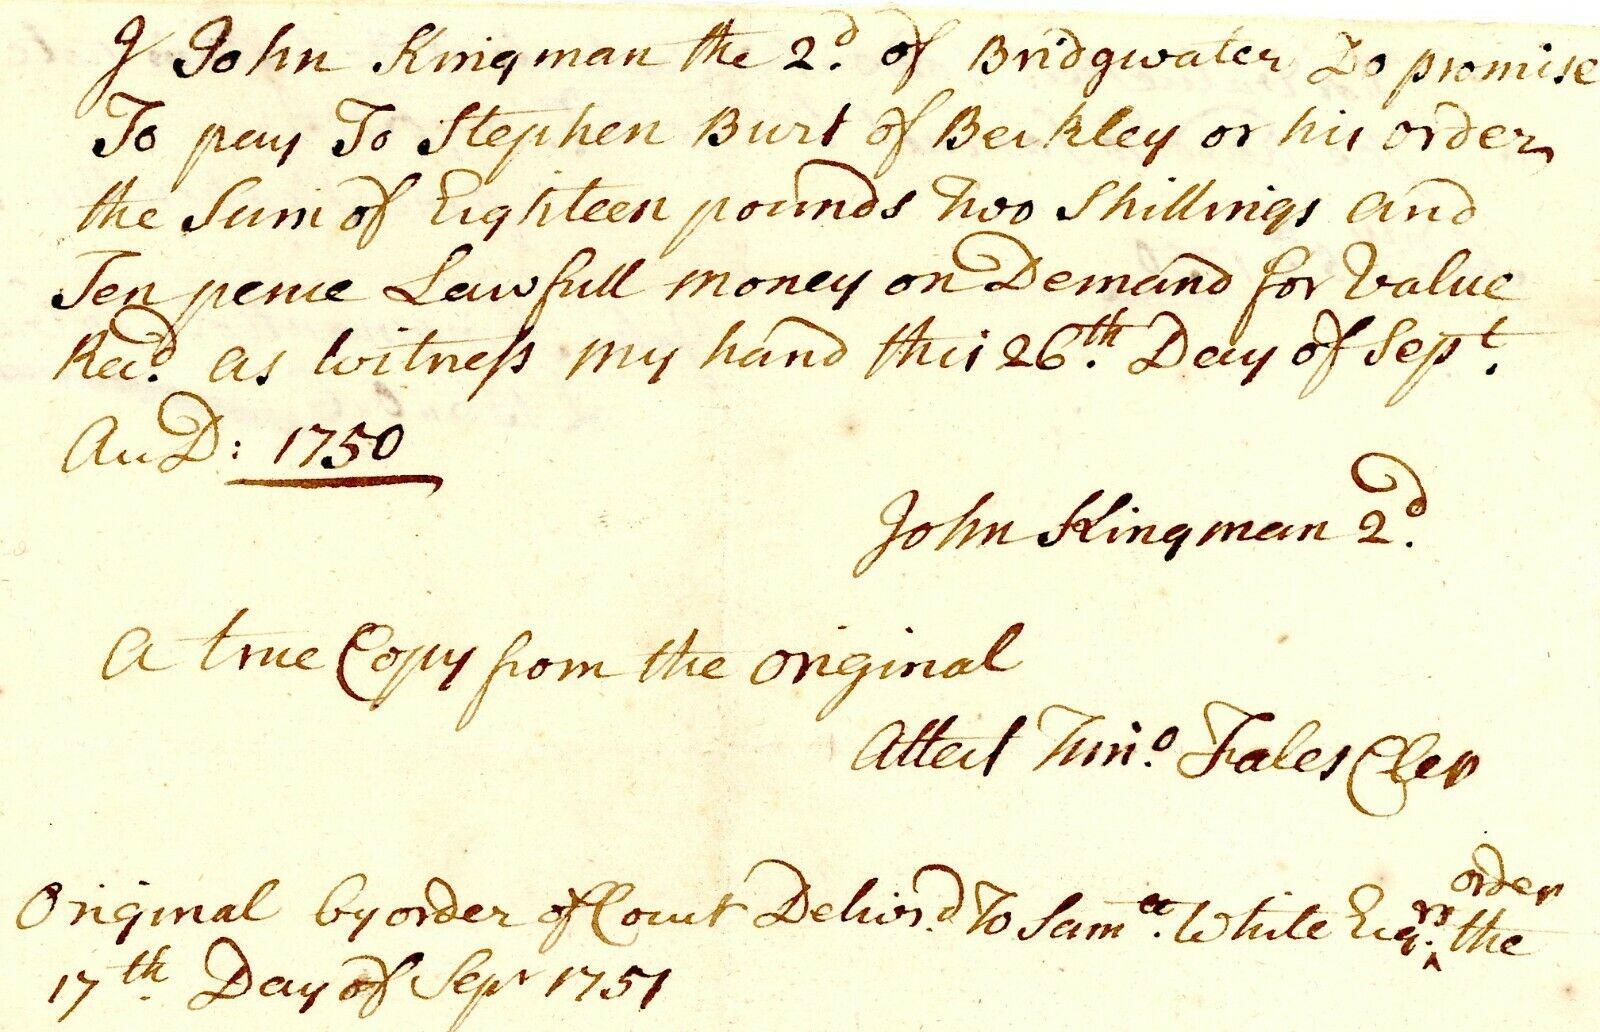 I John Kingman the 2d. of Bridgwater Do promise
To pay To Stephen Burt of Berkley or his order
the Sum of Eighteen pounds Two Shillings and
Ten pence Lawfull money on Demand for Value
Recd. as Witness my hand this 26th. Day of Sept.
AnD: 1750
John Kingman 2d.
A true Copy from the Original
Attest Timo. Fales Cler
Original by order of Court Delivrd. To Samll. White Esqrs. order the
17th. Day of Sepr 1751